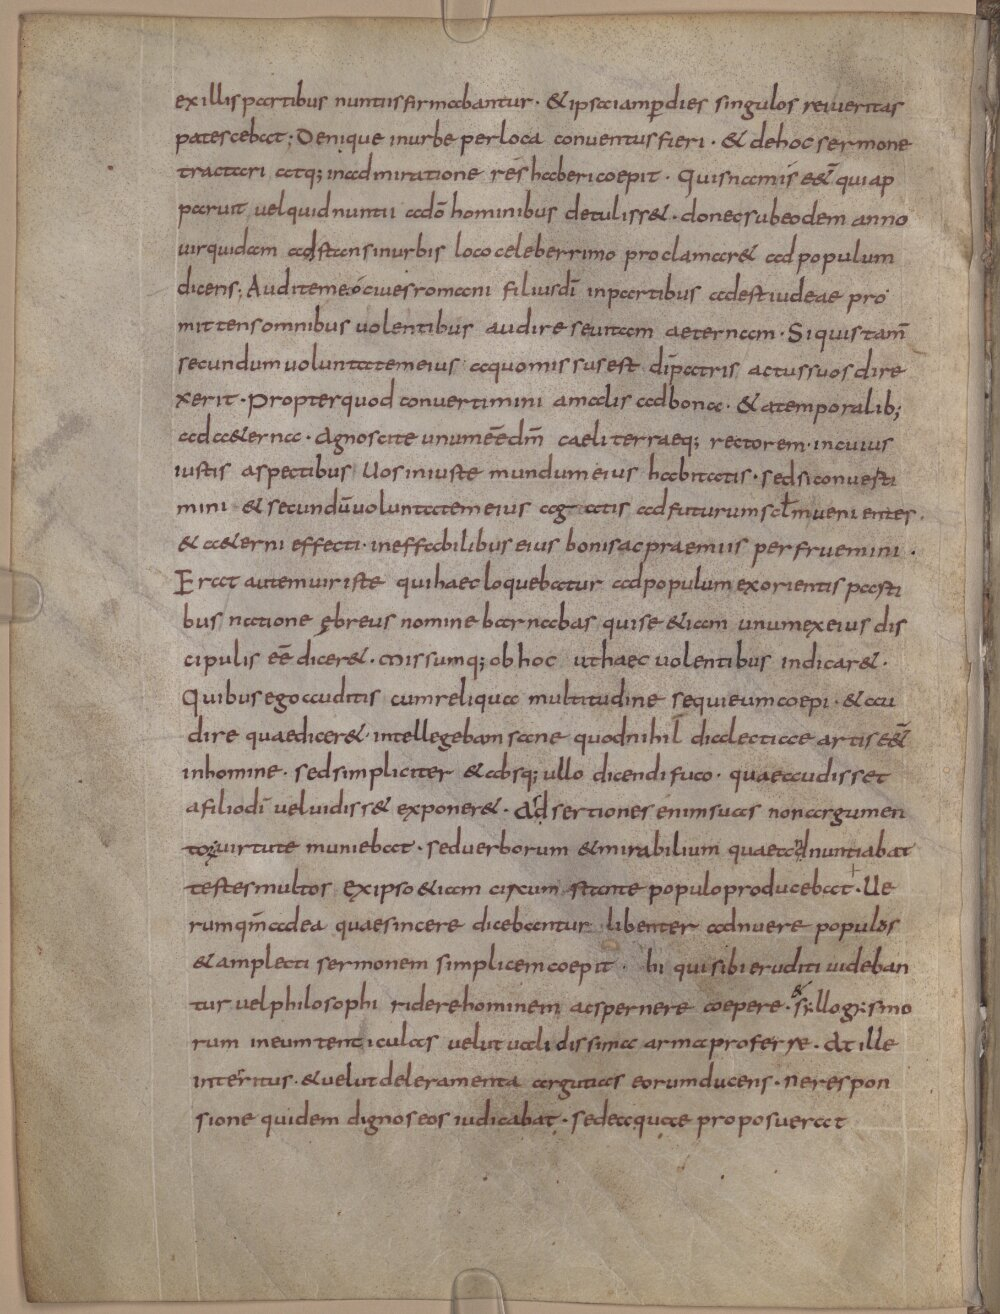 ex illis partibus nuntiis firmabantur · & ipsa iam ꝑ dies singulos rei ueritas
patescebat ; Denique in urbe per loca conventus fieri · & de hoc sermone
tractari atq; in admiratione res haberi coepit · Quis nam is eēt qui ap
paruit vel quid nuntii a dō hominibus detuliss& · donec sub eodem anno
uir quidam adstans in urbis loco celeberrimo proclamar& ad populum
dicens ; Audite me ó ciues romani filius dī in partibus adest iudeae pro
mittens omnibus uolentibus audire se uitam aeternam · Si quis tam̄
secundum uoluntatem eius a quo missus est dī patris actus suos dire
xerit · Propter quod convertimini a malis ad bona · & a temporalib;
ad a&erna · Agnoscite unum eē dm̄ caeli terraeq; rectorem · in cuius
iustis aspectibus Uos iniuste mundum eius habitatis · sed si conuerti
mini & secundū uoluntatem eius agatis ad futurum sclm̄ uenientes ·
& a&erni effecti · ineffabilibus eius bonis ac praemiis perfruemini ·
Erat autem uir iste qui haec loquebatur ad populum ex orientis parti
bus natione ębreus nomine barnabas qui se &iam unum ex eius dis
cipulis eē dicer& · missumq; ob hoc ut haec uolentibus indicar& ·
Quibus ego auditis cum reliqua multitudine sequi eum coepi · & au
dire quae dicer& · intellegebam sane quod nihil dialecticae artis eēt
in homine · sed simpliciter & absq; ullo dicendi fuco · quae audisset
a filio dī vel uidiss& exponer& · Adsertiones enim suas non argumen
toꝝ uirtute muniebat · sed uerborum & mirabilium quae adnuntiabat
testes multos ex ipso &iam circum stante populo producebat · Ue
rum qm̄ ad ea quae sincere dicebantur libenter adnuere populus
& amplecti sermonem simplicem coepit · hi qui sibi eruditi uideban
tur vel philosophi ridere hominem & aspernere coepere · syllogismo
rum in eum tendiculas velut ualidissima arma proferre · At ille
interritus · & velut deleramenta argutias eorum ducens · ne respon
sione quidem dignos eos iudicabat · sed ea quae proposuerat